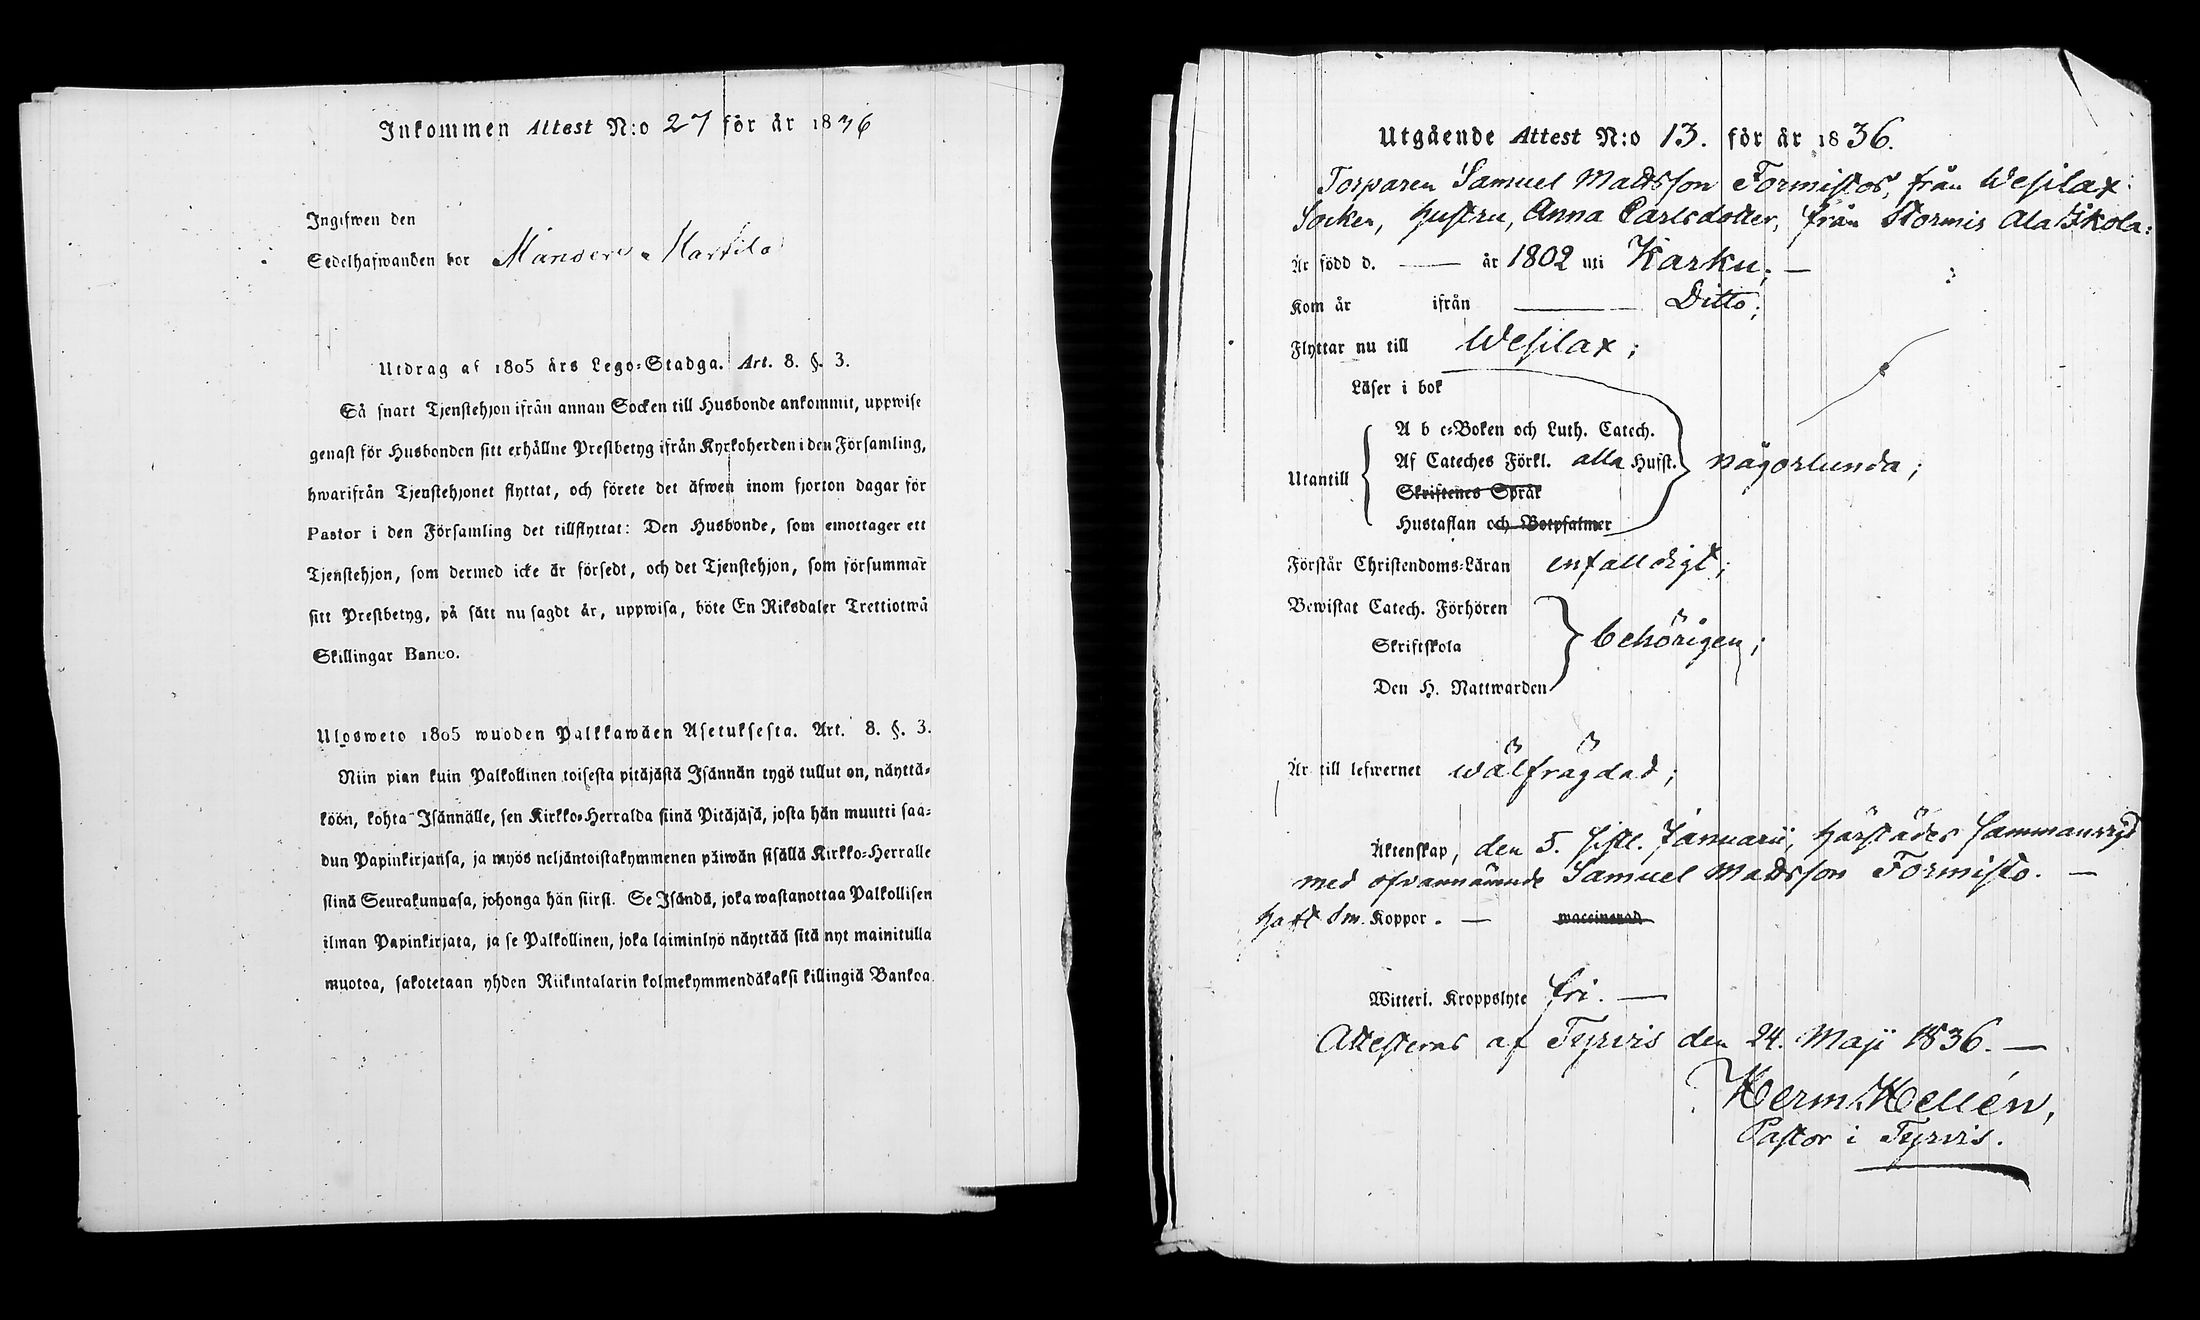 Inkommen Attest N:o 27 för år 1836
Ingifwen den
Sedelhafwanden bor
Utdrag af 1805 års Lego-Stadga. Art. 8. §. 3.
Så snart Tjenstehjon ifrån annan Socken till Husbonde ankommit, uppwise
genast för Husbonden sitt erhållne Prestbetyg ifrån Kyrkoherden i den Församling,
hwarifrån Tjenstehjonet flyttat, och förete det äfwen inom fjorton dagar för
Pastor i den Församling det tillflyttat: Den Husbonde, som emottager ett
Tjenstehjon, som dermed icke är försedt, och det Tjenstehjon, som försummar
sitt Prestbetyg, på sätt nu sagdt är, uppwisa, böte En Riksdaler Trettiotwå
Skillingar Banco.
Ulosweto 1805 wuoden Palkkawäen Asetuksesta. Art. 8. §. 3.
Niin pian kuin Palkollinen toisesta pitäjästä Isännän tygö tullut on, näyttä-
köön, kohta Isännälle, sen Kirkko-Herralda siinä Pitäjäsä, josta hän muutti saa-
dun Papinkirjansa, ja myös neljäntoistakymmenen päiwän sisällä Kirkko-Herralle
siinä Seurakunnasa, johonga hän siirsi. Se Isändä, joka wastanottaa Palkollisen
ilman Papinkirjata, ja se Palkollinen, joka laiminlyö näyttää sitä nyt mainitulla
muotoa, sakotetaan yhden Riikintalarin kolmekymmendäkaksi killingiä Bankoa
Utgående Attest N:o 13. för år 1836.
Torparen Samuel Mattsson Formistos, från Wesilax
Socken, hustru, Anna Carlsdotter, från Stormis Ala Skola:
Är född d. — år 1802 uti Karku; —
Kom år ifrån — Ditto;
Flyttar nu till Wesilax;
Läser i bok
Utantill
A b c-Boken och Luth. Catech.
Af Cateches Förkl. alla Hufst. någorlunda;
Skriftenes Språk
Hustaflan och Botpsalmer
Förstår Christendoms-Läran enfalldigt;
Bewistat Catech. Förhören
Skriftskola behörigen;
Den H. Nattwarden
Är till lefwernet wälfrägdad;
Äktenskap, den 5. sistl. Januarii, härstädes sammanvigd
med ofvannämnde Samuel Mattsson Formisto. —
haft Sm. Koppor. — waccinerad
Witterl. Kroppslyte fri. —
Attesteras af Tyrvis den 24. Maji 1836. —
Herm. Hellén,
Pastor i Tyrvis.